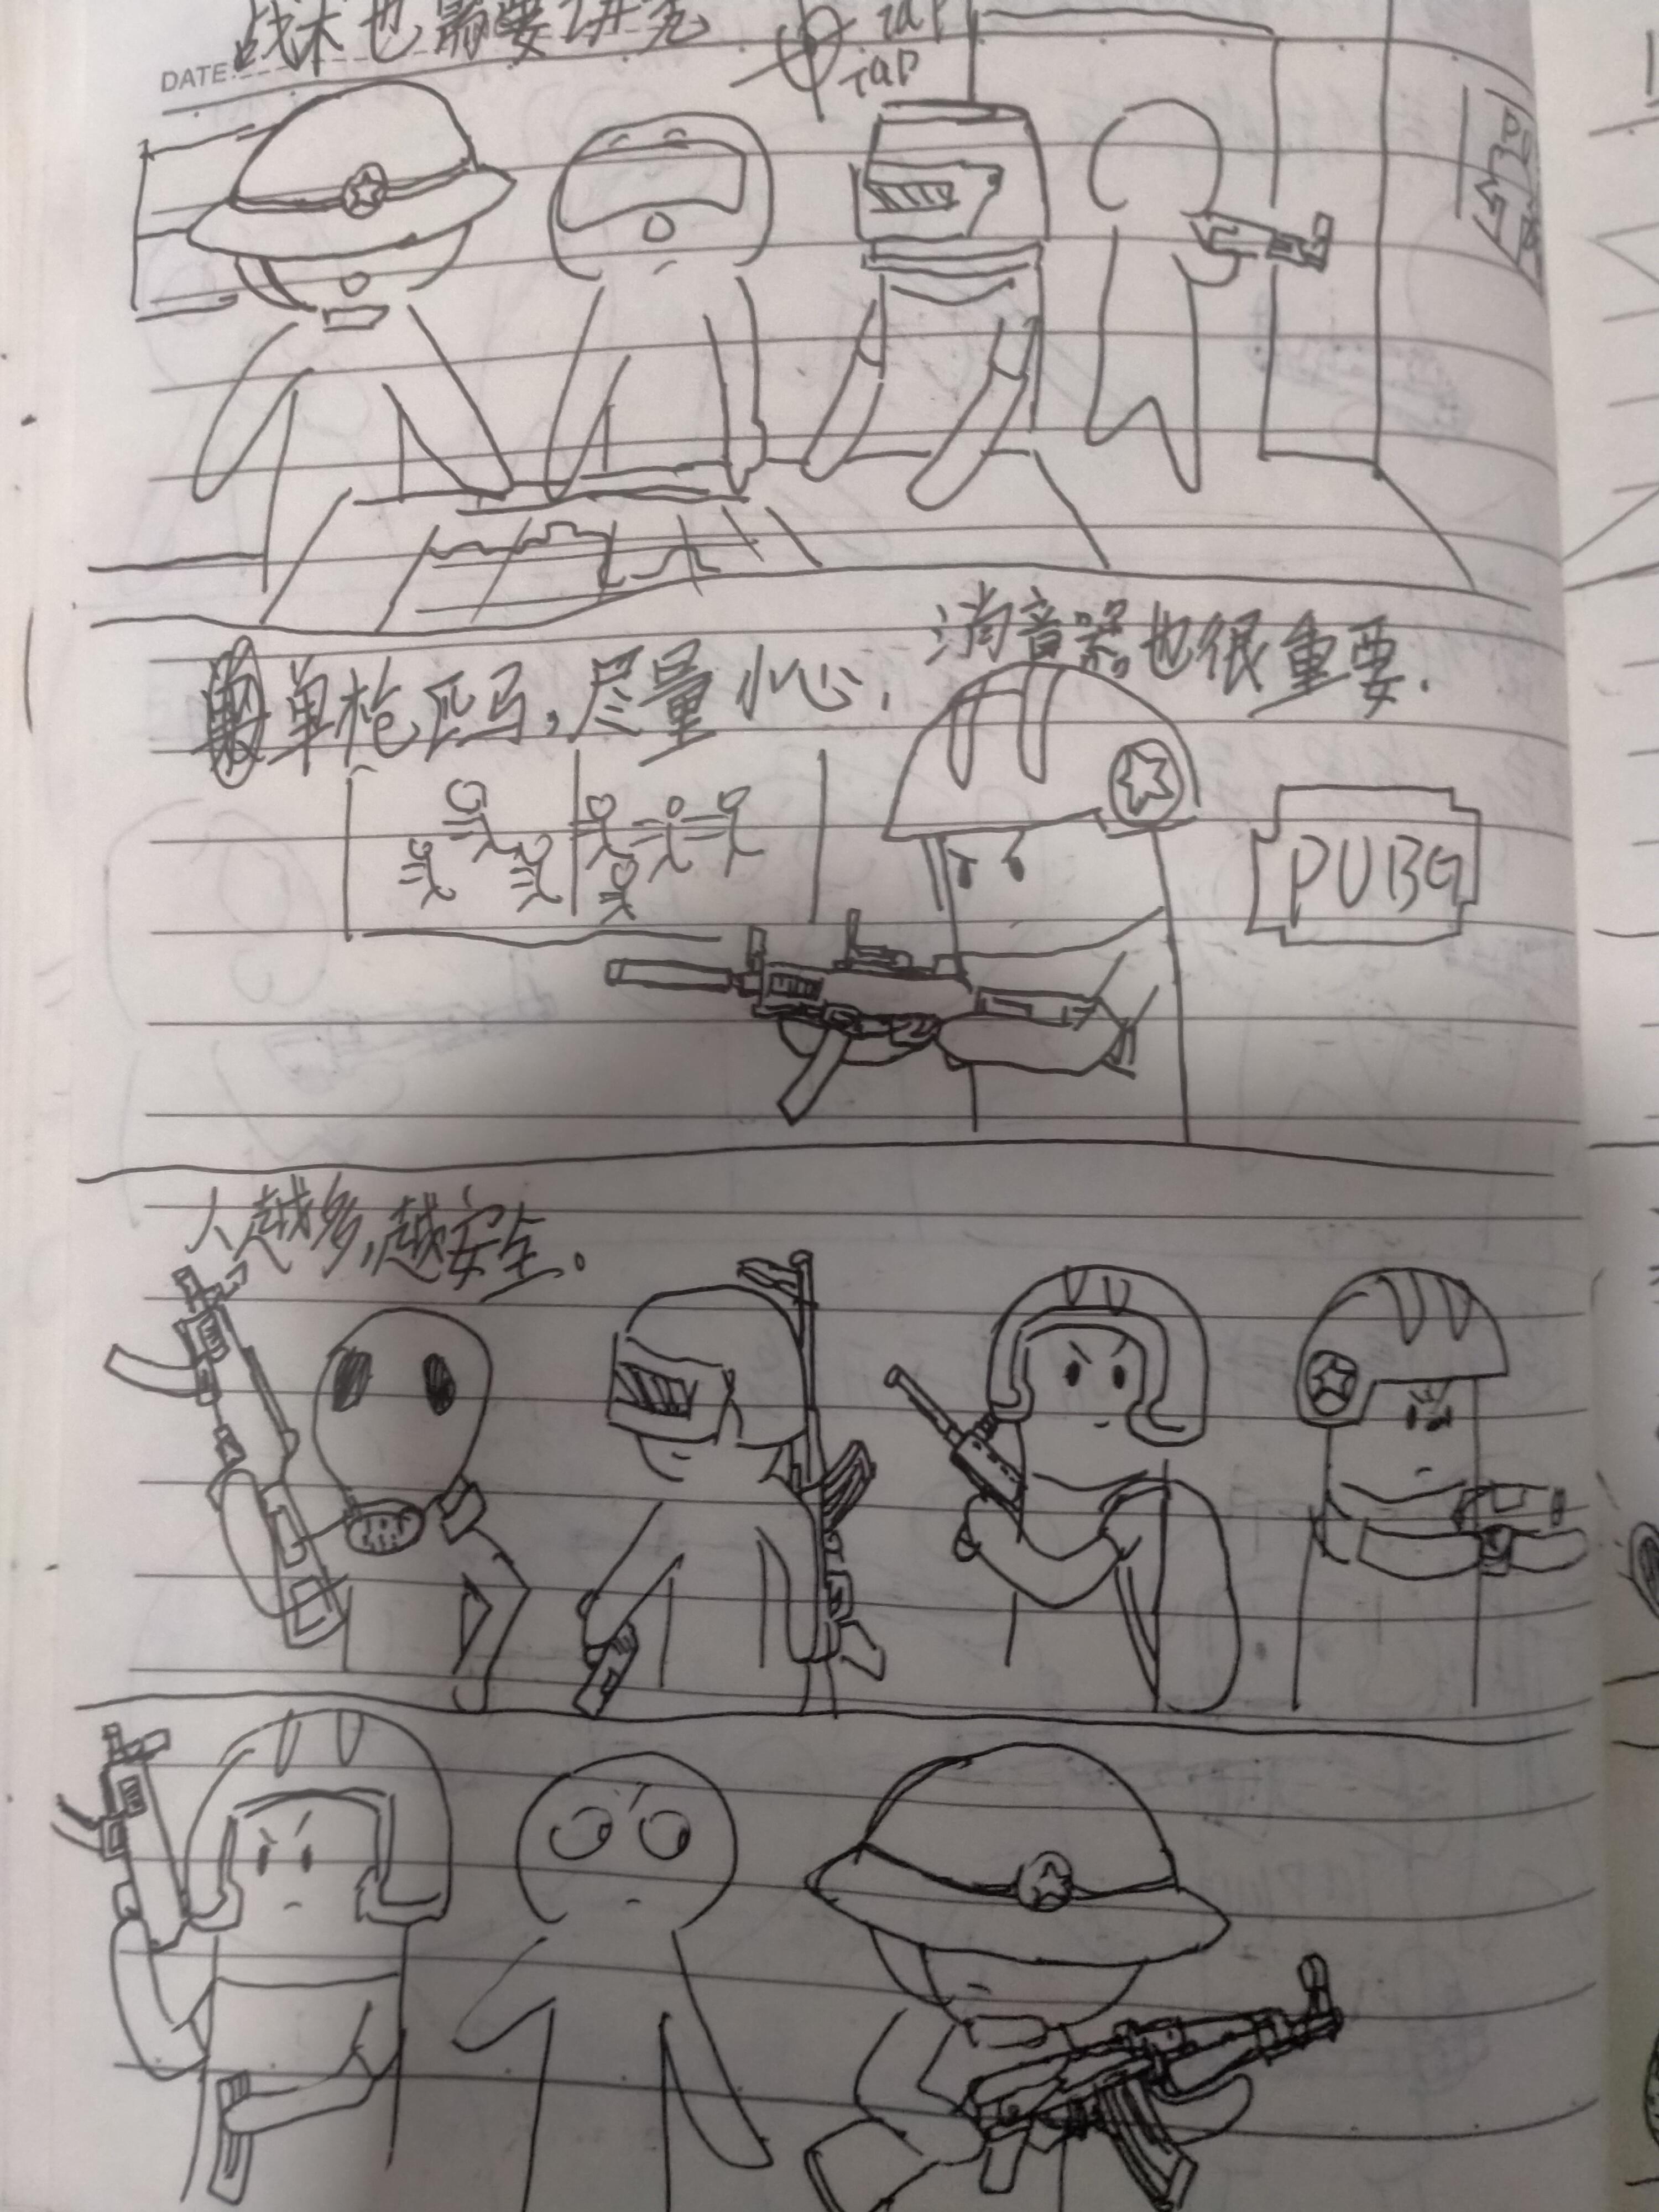 战术也需要讲究
DATE:
TaP
TaP
单枪匹马,尽量小心,
消音器也很重要.
PUBG
人越多,越安全。